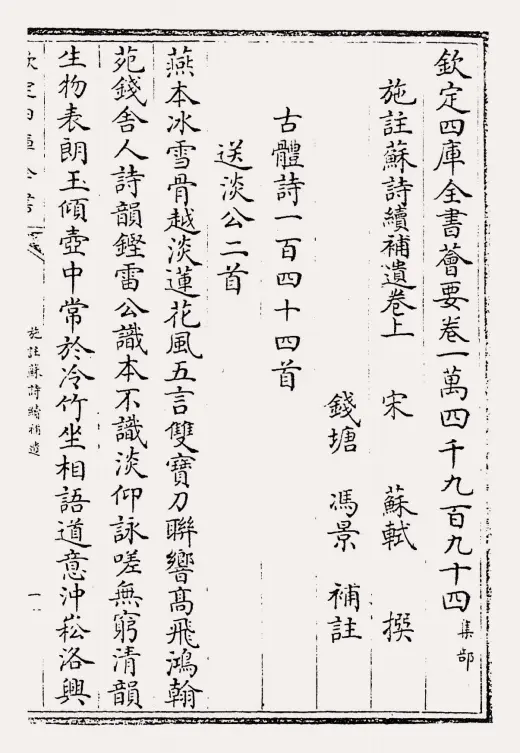 欽定四庫全書薈要卷一萬四千九百九十四 集部
施註蘇詩續補遺卷上 宋 蘇軾 撰
錢塘 馮景 補註
古體詩一百四十四首
送淡公二首
燕本冰雪骨越淡蓮花風五言雙寶刀聯響髙飛鴻翰
苑錢舍人詩韻鏗雷公識本不識淡仰詠嗟無窮清韻
生物表朗玉傾壺中常於冷竹坐相語道意沖崧洛興
欽定四庫全書
施註蘇詩續補遺
一